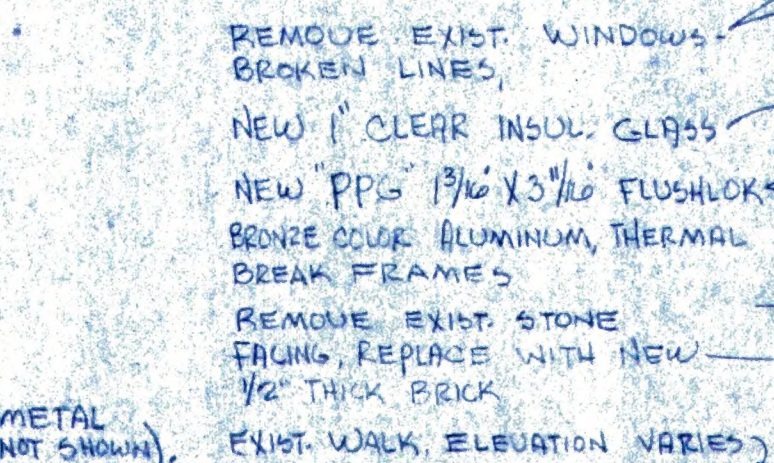 REMOVE EXIST. WINDOWS -
BROKEN LINES,
NEW 1" CLEAR INSUL. GLASS
NEW "PPG" 1 3/16" X 3 11/16" FLUSHLOKS
BRONZE COLOR ALUMINUM, THERMAL
BREAK FRAMES
REMOVE EXIST. STONE
FACING, REPLACE WITH NEW
1/2" THICK BRICK
METAL
NOT SHOWN).
EXIST. WALK, ELEVATION VARIES